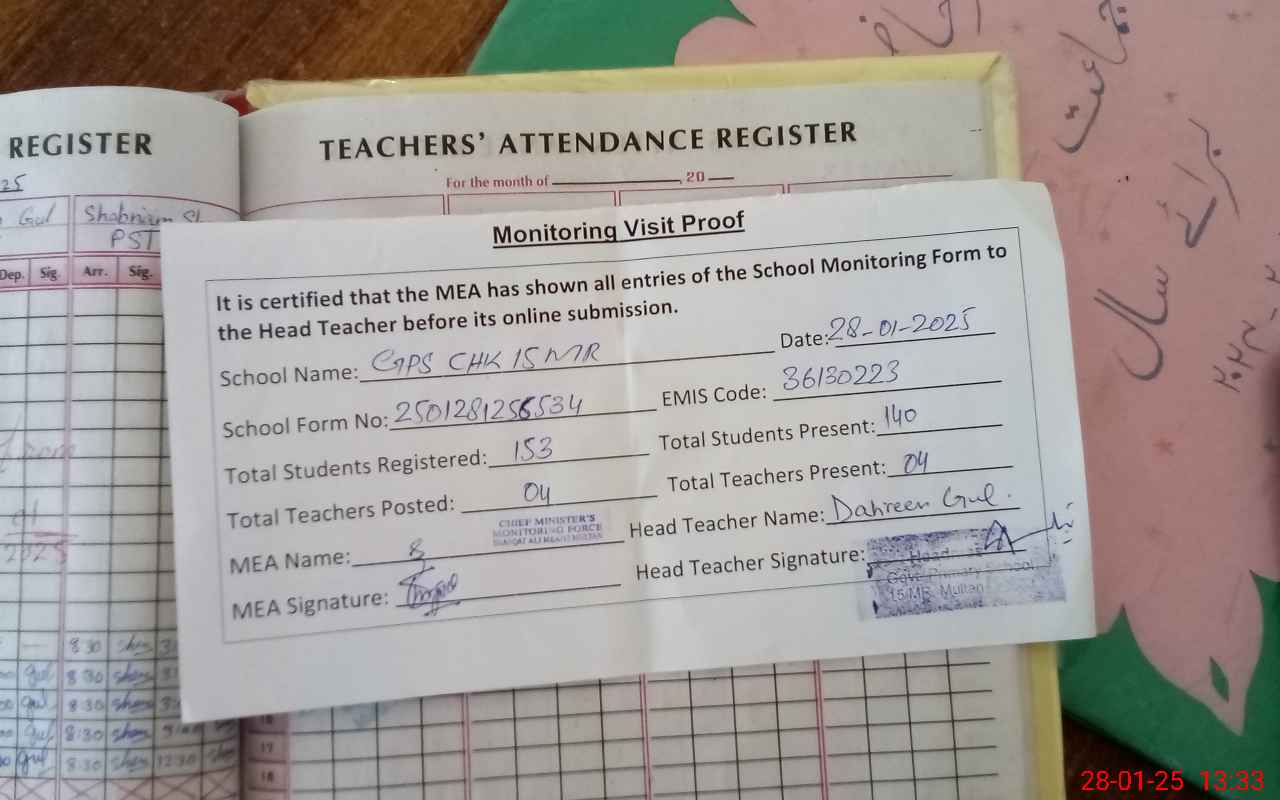 REGISTER
25
Gul
Shabnum
PST
Dep. Sig. Arr. Sig.
TEACHERS' ATTENDANCE REGISTER
For the month of , 20
Monitoring Visit Proof
It is certified that the MEA has shown all entries of the School Monitoring Form to
the Head Teacher before its online submission.
School Name: GPS CHK 15 MR Date: 28-01-2025
School Form No: 2501281256534 EMIS Code: 36130223
Total Students Registered: 153 Total Students Present: 140
Total Teachers Posted: 04 Total Teachers Present: 04
MEA Name: 8 CHIEF MINISTER'S MONITORING FORCE Head Teacher Name: Dahreen Gul.
MEA Signature: Head Teacher Signature:
Govt. Primary School
15 MR Multan
2025
8:30
gul 8:30
gul 8:30
gul 8:30
gul 8:30 12:30
17
18
جماعت
برائے سال
28-01-25 13:33